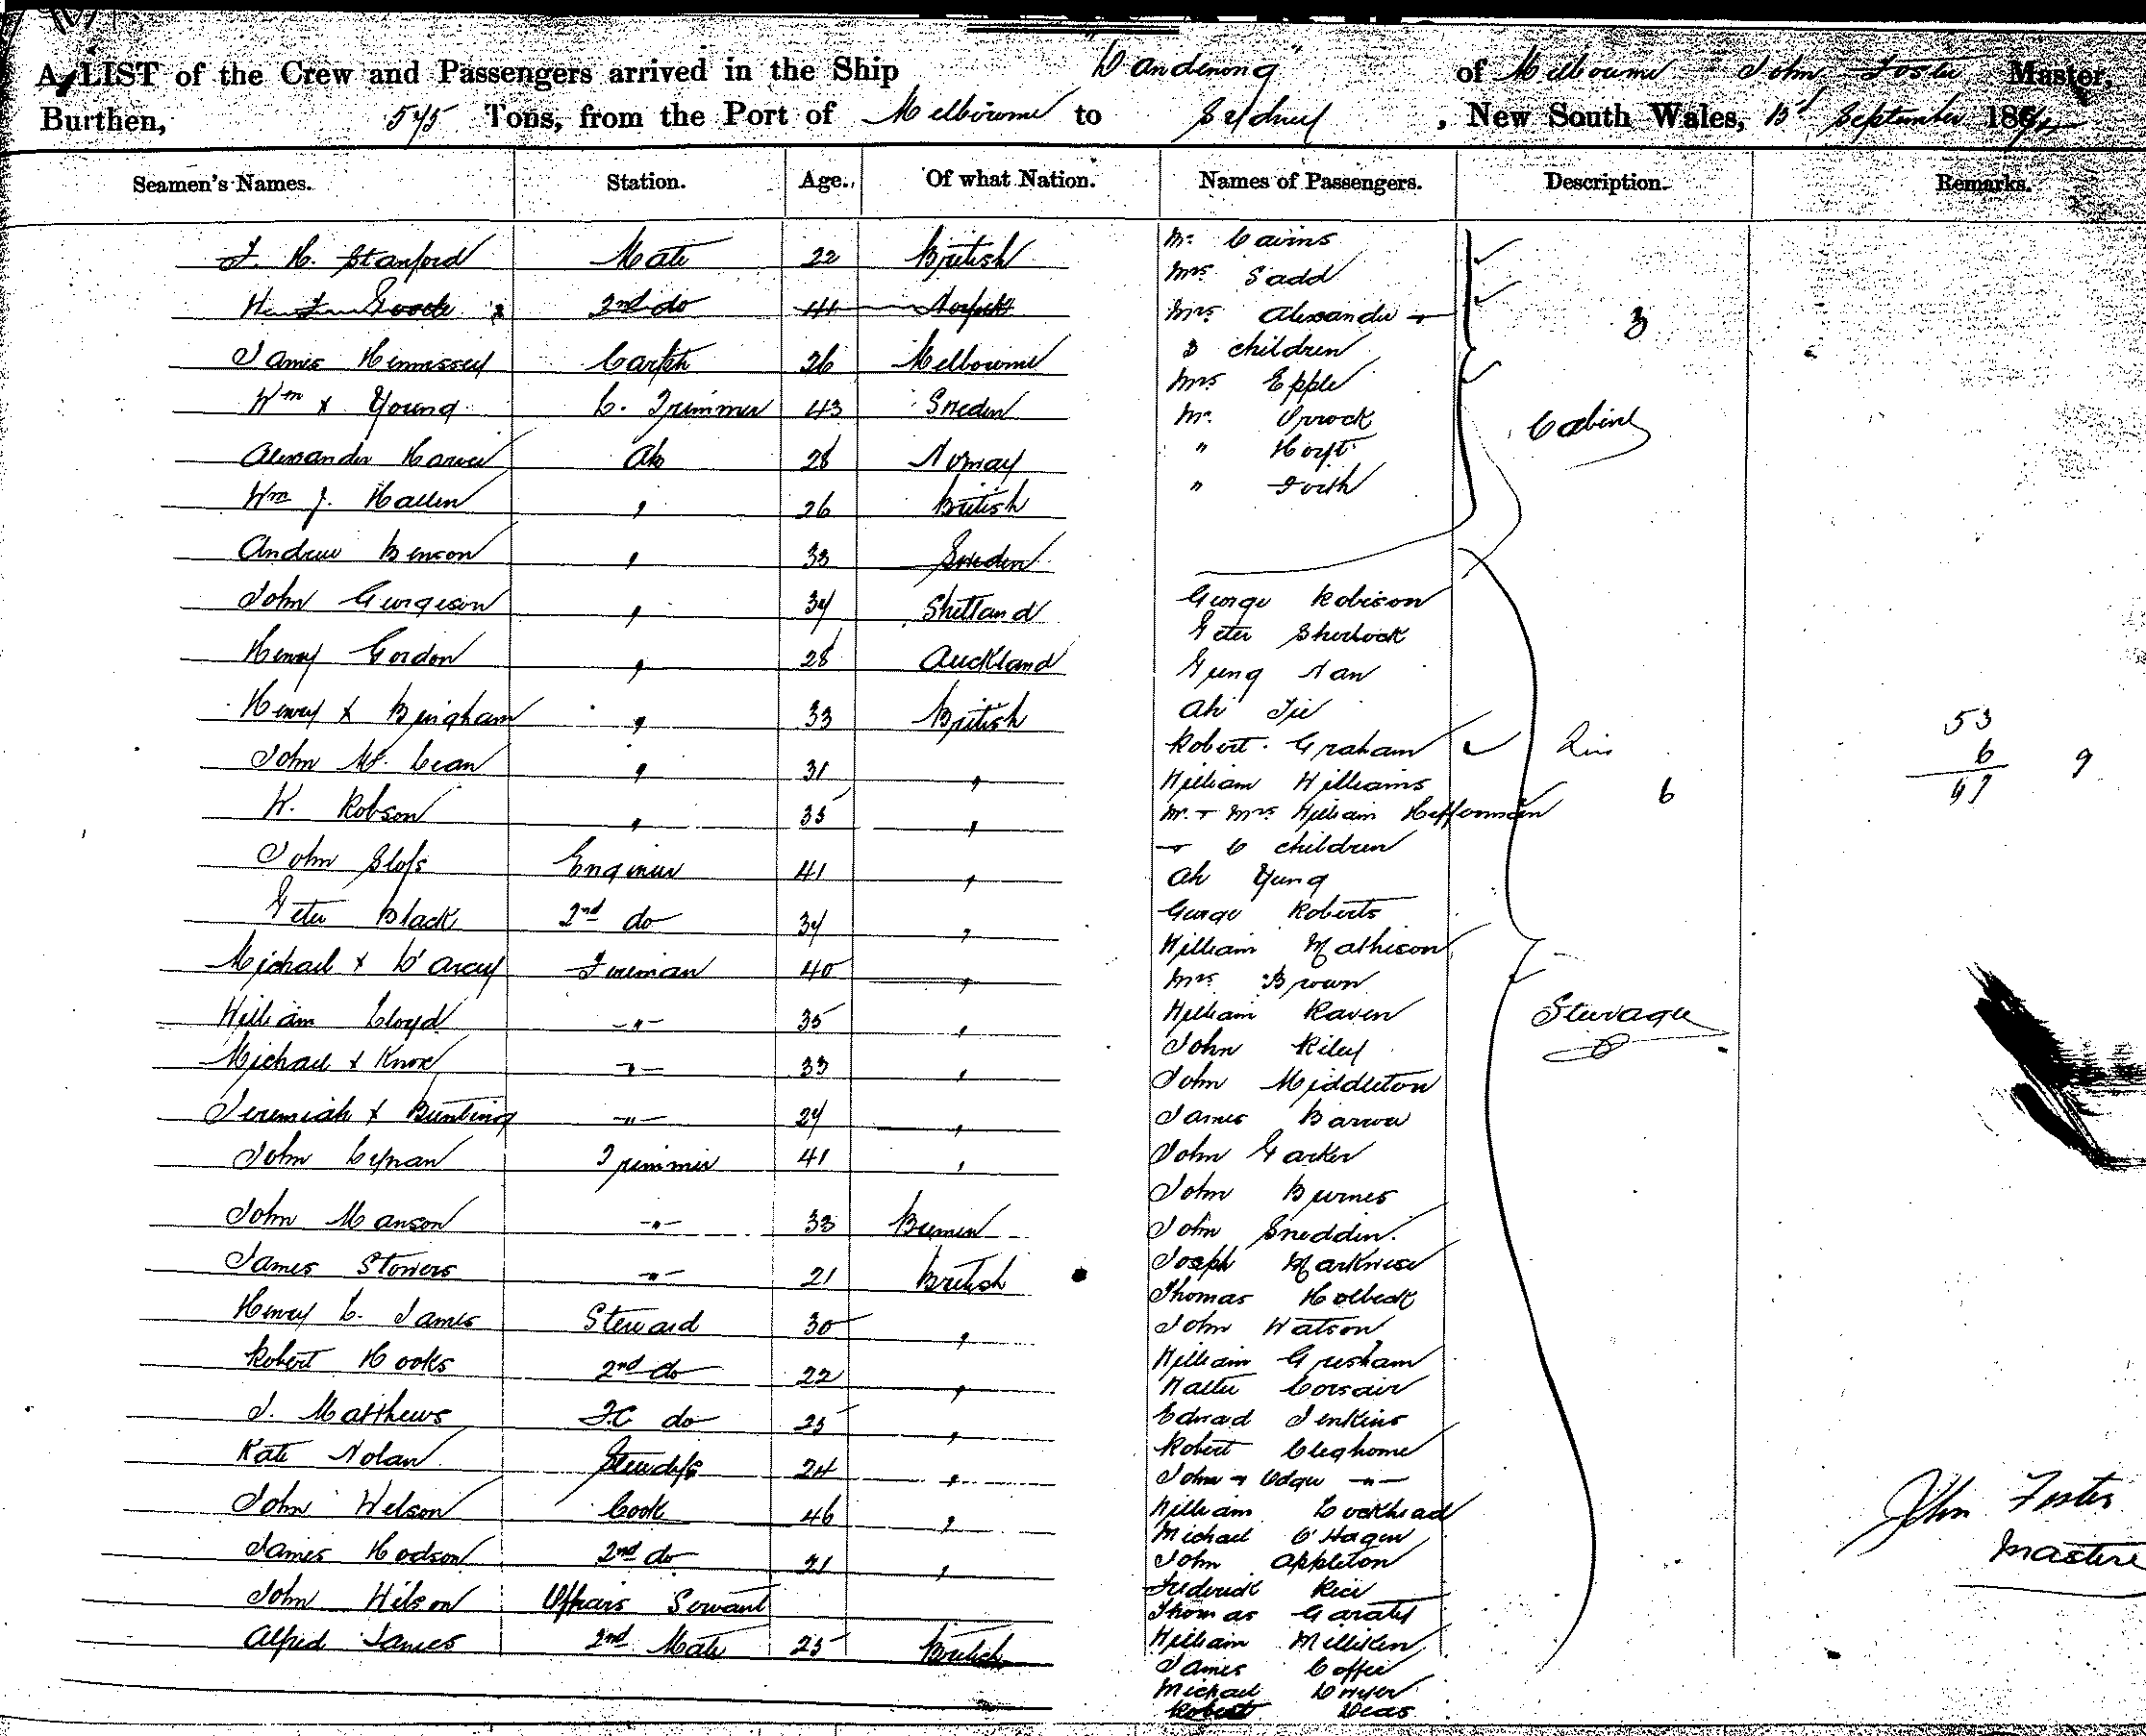 A LIST of the Crew and Passengers arrived in the Ship "Dandenong" of Melbourne John Foster Master,
Burthen, 575 Tons, from the Port of Melbourne to Sydney, New South Wales, September 187
Seamen's Names. Station. Age. Of what Nation. Names of Passengers. Description. Remarks.
Stanford Mate 22 British
2nd do 41
James Hennessey Carptr 26 Melbourne
Wm x Young C. Trimmer 43 Sweden
Alexander Harvie AB 28 Norway
Wm J. Hallen " 26 British
Andrew Benson " 33 Sweden
John Georgeson " 34 Shetland
Henry Gordon " 28 Auckland
Henry x Bingham " 33 British
John Mc Lean " 31 "
W. Robson " 35 "
John Sloss Engineer 41 "
Peter Black 2nd do 34 "
Michael x D'arcy Fireman 40 "
William Lloyd -"- 35 "
Michael x Knox -"- 33 "
Jeremiah x Bunting -"- 24 "
John Trimmer 41 "
John Manson -"- 33 Bremen
James Stowers -"- 21 British
Henry C. James Steward 30 "
Robert Hooks 2nd do 22 "
J. Matthews F.C do 25 "
Kate Nolan Stewdss 24 "
John Welson Cook 46 "
James Hodson 2nd do 21 "
John Wilson Officers Servant
Alfred James 2nd Mate 25 British
Mr Cairns
Mrs Sadd
Mrs Alexander +
3 children
3
Mrs Epple
Mr Orrock
Cabin
" Horft
" Forth
George Robison
Peter Sherlock
Gung Nan
Ah Tie
Robert Graham
William Williams
Mr + Mrs William Heffernan
+ 6 children
6
Ah Yung
George Roberts
William Mathison
Mrs Brown
William Raven
Steerage
John Riley
John Middleton
James Barrow
John Parker
John Burnes
John Sneddin
Joseph
Thomas Holbeck
John Watson
William Gresham
Walter Corsair
Edward Jenkins
Robert Cleghorne
John + Edgar -"-
William Lockhead
Michael O'Hagen
John Appleton
Frederick Rice
Thomas
William Milliken
James Coffee
Michael Dwyer
Robert Deas
53
6
9
John Foster
Master